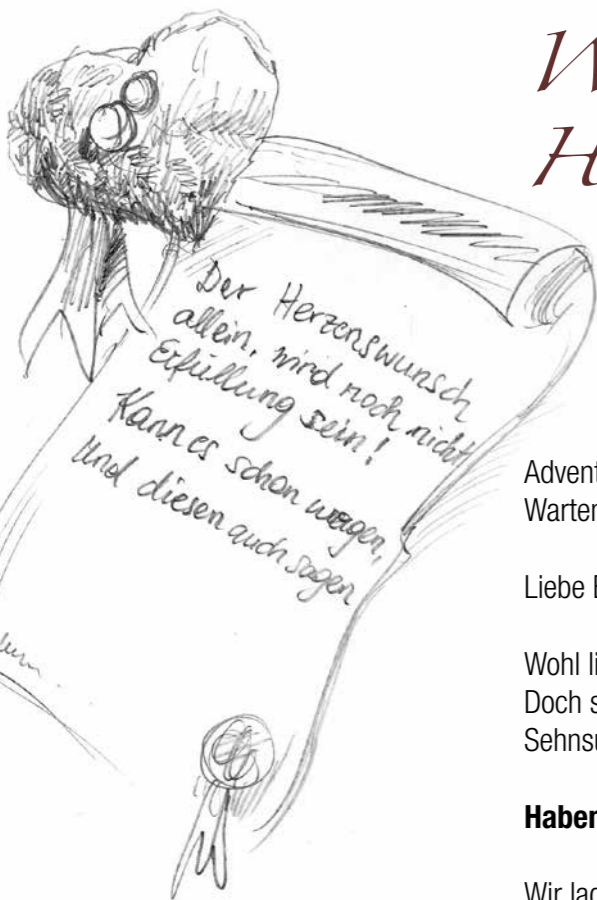 Der Herzenswunsch
allein, wird noch nicht
Erfüllung sein!
Kann es schon wagen,
Und diesen auch sagen
W
H
Advent
Warten
Liebe
Wohl
Doch
Haben
Wir